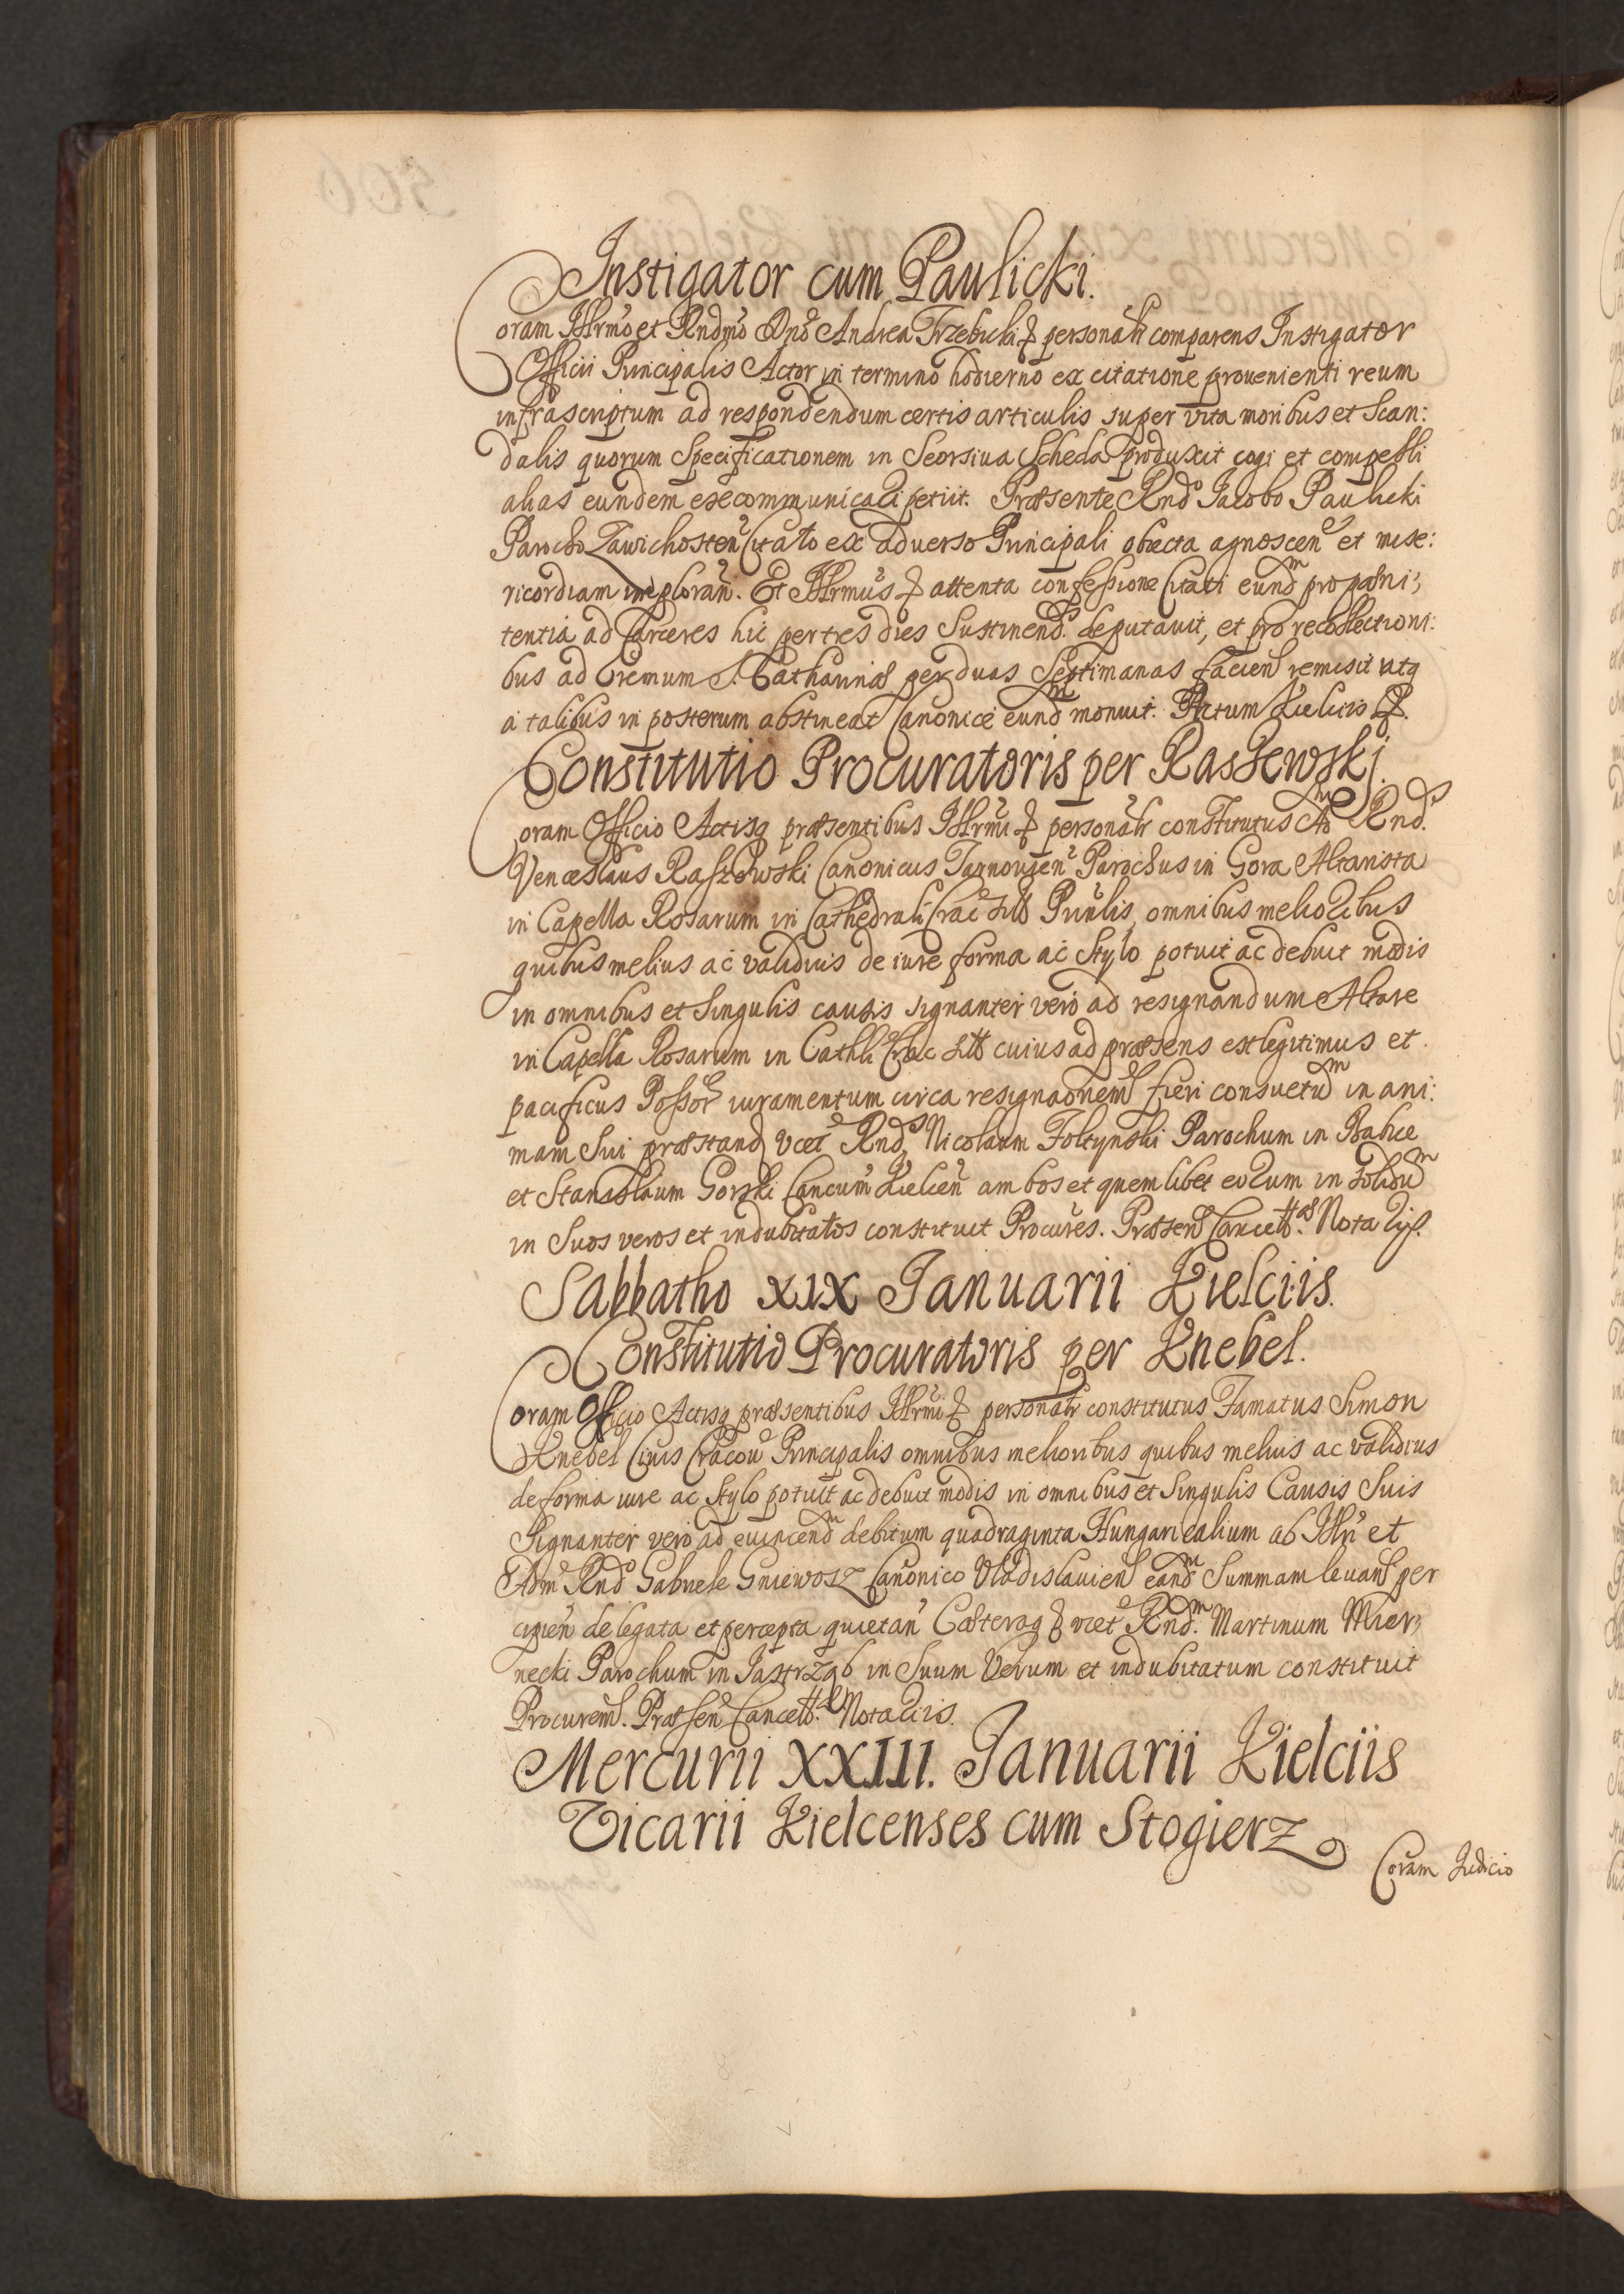 Instigator cum Paulicki.
Coram Illrmo et Rndmo Dno Andrea Trzebicki & personalr comparens Instigator
Officii Principalis Actor in termino hodierno ex citatione prouenienti reum
infrascriptum ad respondendum certis articulis super vita moribus et Scan:
dalis quorum Specificationem in Seorsiua Scheda produxit cogi et compelli
alias eundem excommunicari petiit. Præsente Rndo Jacobo Paulicki
Parocho Zawichosten Citato ex aduerso Principali obiecta agnoscen et mise:
ricordiam imploran. Et Illrmus & attenta confessione Citati eundm pro pæni;
tentia ad Carceres hic per tres dies Sustinend. deputauit, et pro recollectioni:
bus ad Eremum S. Catharinæ per duas Septimanas faciens remisit utq
a talibus in posterum abstineat Canonice eundm monuit. Actum Kielciis &.
Constitutio Procuratoris per Raszewskj.
Coram Officio Actisq præsentibus Illrmi & personalr constitutus Adm Rnds.
Venceslaus Raszewski Canonicus Tarnouien Parochus in Gora Altarista
in Capella Rosarum in Cathedrali Crac sitt Prinlis, omnibus melioribus
quibus melius ac validius de iure forma ac Stylo potuit ac debuit modis
in omnibus et Singulis causis signanter vero ad resignandum Altare
in Capella Rosarum in Cathli Crac sitt cuius ad præsens est legitimus et
pacificus Possor iuramentum circa resignaonem fieri consuetum in ani:
mam Sui præstand vcet Rnds Nicolaum Foltynski Parochum in Babice
et Stanislaum Gorski Cancum Kielcen ambos et quemlibet eorum in solidum
in Suos veros et indubitatos constituit Procures. Præsen Cancell. Notariis.
Sabbatho XIX Januarii Kielciis.
Constitutio Procuratoris per Knebel.
Coram Officio Actisq præsentibus Illrmi & personalr constitutus Famatus Simon
Knebel Ciuis Cracou Principalis omnibus melioribus quibus melius ac validius
de forma iure ac Stylo potuit ac debuit modis in omnibus et Singulis Causis Suis
Signanter vero ad euincendm debitum quadraginta Hungaricalium ab Illri et
Adm Rndo Gabriele Gniewosz Canonico Vladislauien eandm Summam leuan per
cipien de legata et percepta quietan Cæteraq & vcet Rndm. Martinum Mier;
necki Parochum in Jastrząb in Suum Verum et indubitatum constituit
Procurem. Præsen Cancell. Notariis.
Mercurii XXIII. Januarii Kielciis
Vicarii Kielcenses cum Stogierz
Coram Judicio